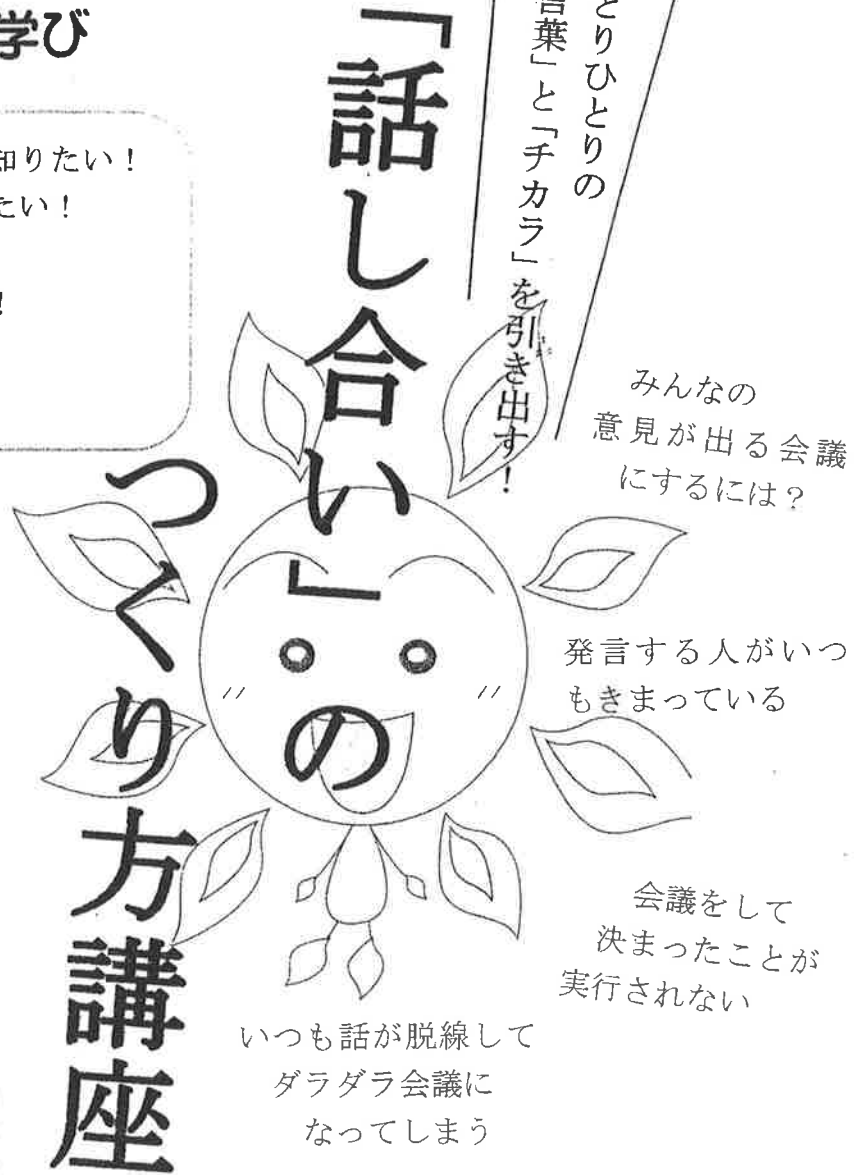 学び
知りたい！
たい！
！
とりひとりの
言葉」と「チカラ」を引き出す！
「話し合い」の
つくり方講座
みんなの
意見が出る会議
にするには？
発言する人がいつ
もきまっている
会議をして
決まったことが
実行されない
いつも話が脱線して
ダラダラ会議に
なってしまう